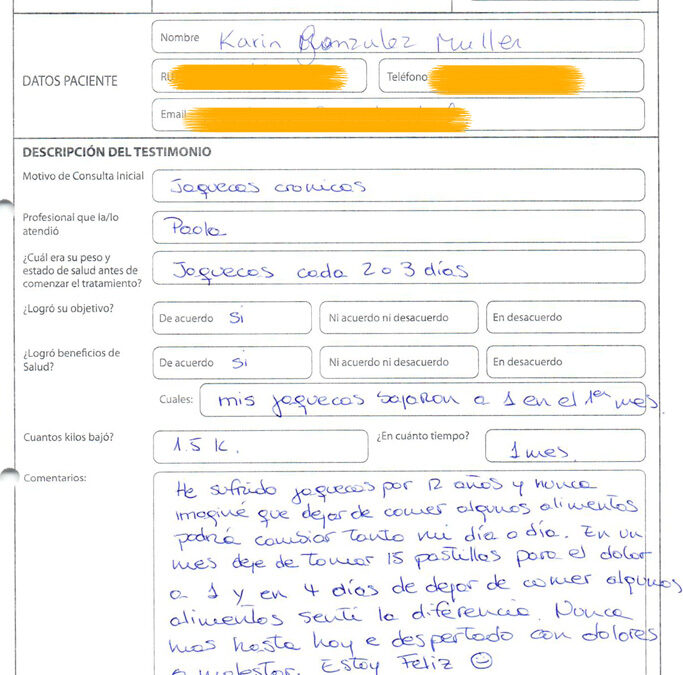 Nombre Karin Gonzulez Muller
DATOS PACIENTE
Teléfono
Email
DESCRIPCIÓN DEL TESTIMONIO
Motivo de Consulta Inicial Jaquecas cronicas
Profesional que la/lo atendió Paola
¿Cuál era su peso y
estado de salud antes de
comenzar el tratamiento? Jaquecas cada 2 o 3 días
¿Logró su objetivo? De acuerdo Si Ni acuerdo ni desacuerdo En desacuerdo
¿Logró beneficios de
Salud? De acuerdo Si Ni acuerdo ni desacuerdo En desacuerdo
Cuales: mis jaquecas bajaron a 1 en el 1er mes
Cuantos kilos bajó? 1.5 K. ¿En cuánto tiempo? 1 mes.
Comentarios:
He sufrido jaquecas por 12 años y nunca
imaginé que dejar de comer algunos alimentos
podría cambiar tanto mi día a día. En un
mes deje de tomar 15 pastillas para el dolor
a 1 y en 4 días de dejar de comer algunos
alimentos sentí la diferencia. Nunca
mas hasta hoy e despertado con dolores
o malestar. Estoy Feliz ☺